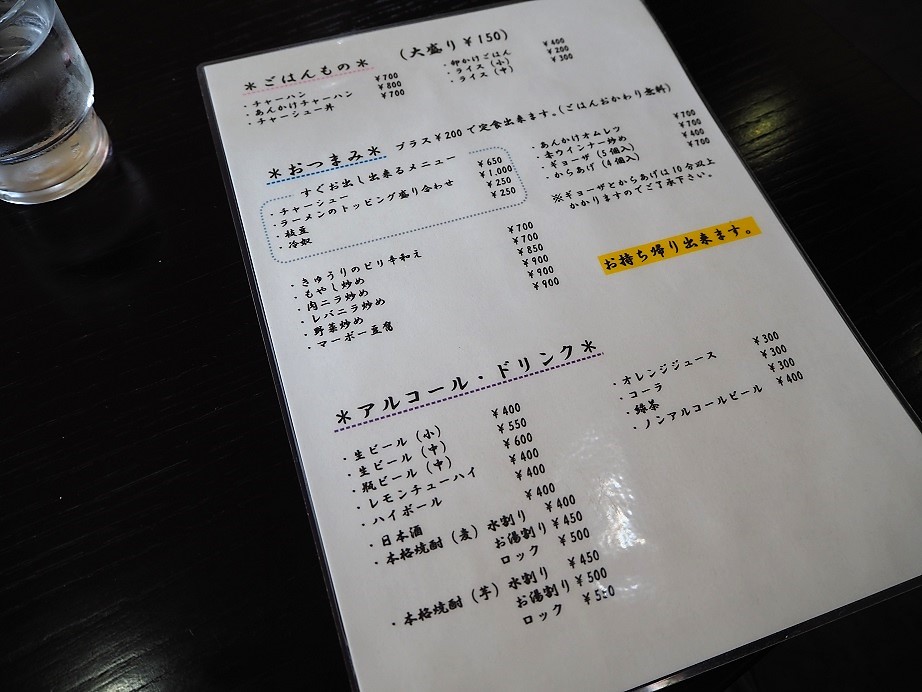 ＊ごはんもの＊ (大盛り¥150)
・チャーハン ¥700
・あんかけチャーハン ¥800
・チャーシュー丼 ¥700
・卵かけごはん ¥400
・ライス (小) ¥200
・ライス (中) ¥300
＊おつまみ＊ プラス¥200で定食出来ます。(ごはんおかわり無料)
すぐお出し出来るメニュー
・チャーシュー ¥650
・ラーメンのトッピング盛り合わせ ¥1.000
・枝豆 ¥250
・冷奴 ¥250
・きゅうりのピリ辛和え ¥700
・もやし炒め ¥700
・肉ニラ炒め ¥850
・レバニラ炒め ¥900
・野菜炒め ¥900
・マーボー豆腐 ¥900
・あんかけオムレツ ¥700
・赤ウインナー炒め ¥700
・ギョーザ (5個入) ¥400
・からあげ (4個入) ¥700
※ギョーザとからあげは10分以上
かかりますのでご了承下さい。
お持ち帰り出来ます。
＊アルコール・ドリンク＊
・生ビール (小) ¥400
・生ビール (中) ¥550
・瓶ビール (中) ¥600
・レモンチューハイ ¥400
・ハイボール ¥400
・日本酒 ¥400
・本格焼酎 (麦) 水割り ¥400
お湯割り ¥450
ロック ¥500
・本格焼酎 (芋) 水割り ¥450
お湯割り ¥500
ロック
・オレンジジュース ¥300
・コーラ ¥300
・緑茶 ¥300
・ノンアルコールビール ¥400